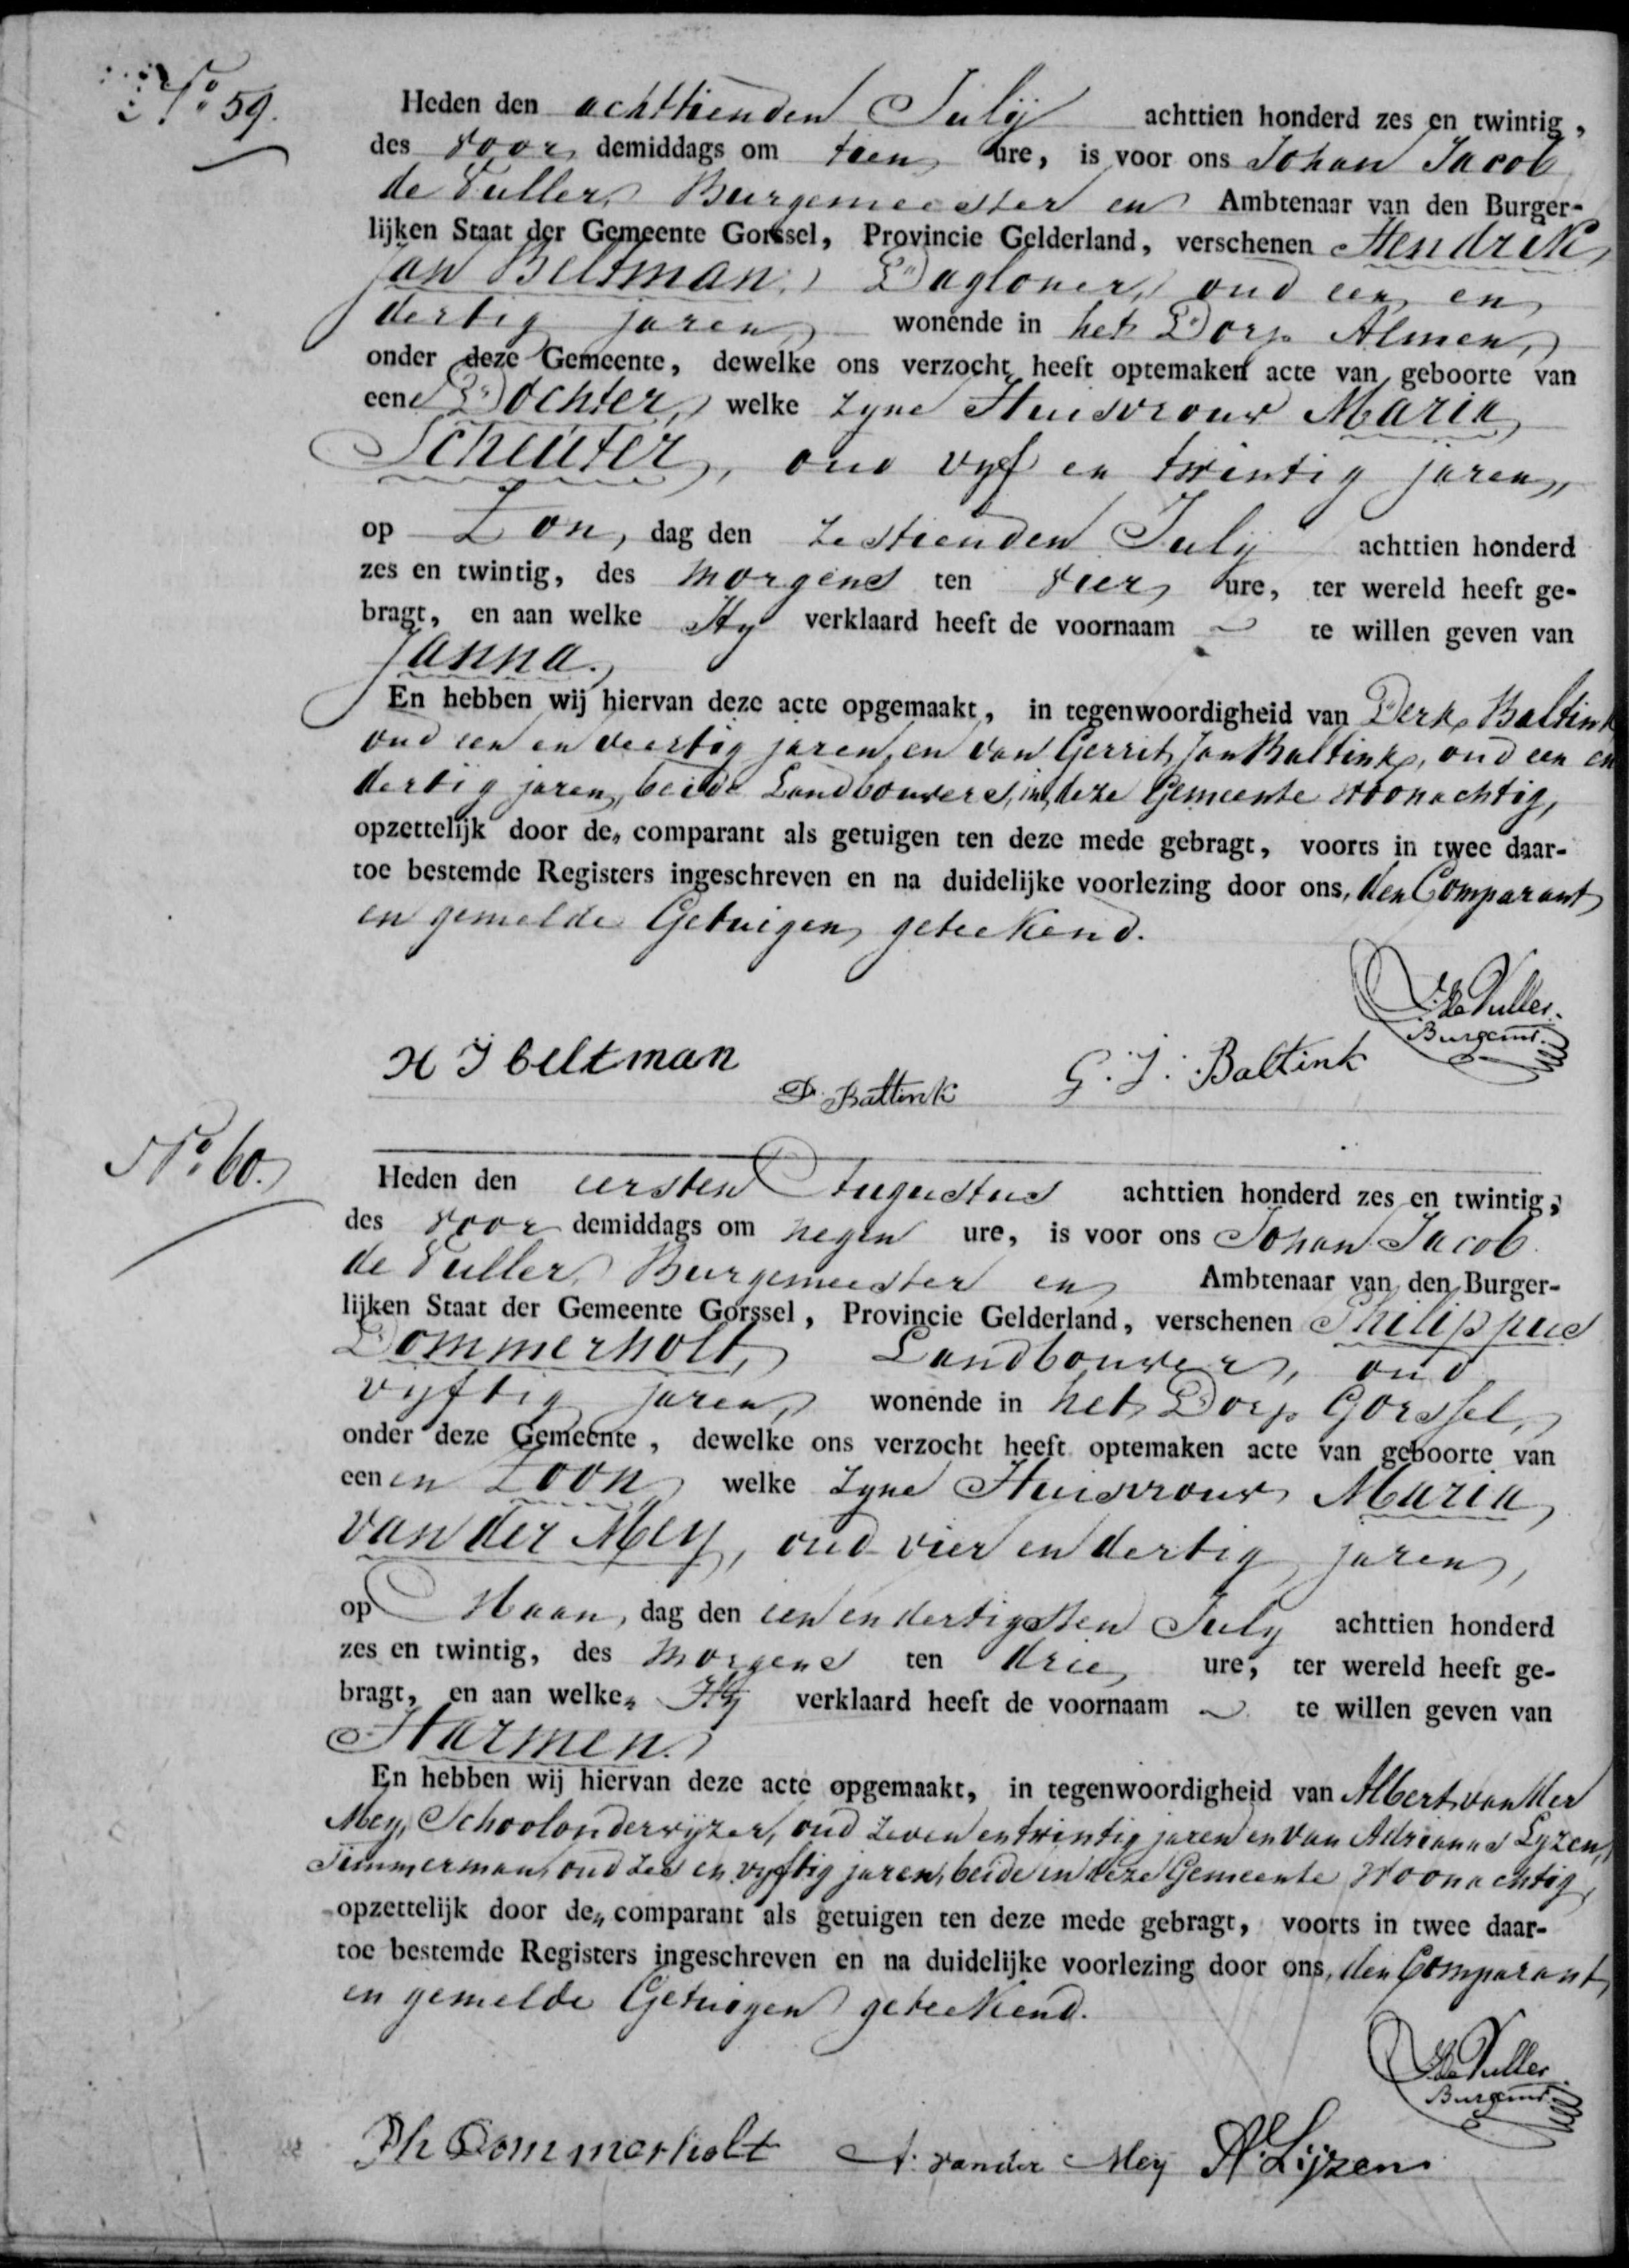 No. 59.
Heden den achttienden Julij achttien honderd zes en twintig,
des voor demiddags om tien ure, is voor ons Johan Jacob
de Vuller, Burgemeester en Ambtenaar van den Burger-
lijken Staat der Gemeente Gorssel, Provincie Gelderland, verschenen Hendrik
Jan Beltman, Dagloner, oud een en
dertig jaren, wonende in het Dorp Almen,
onder deze Gemeente, dewelke ons verzocht heeft optemaken acte van geboorte van
eene Dochter, welke zyne Huisvrouw Maria
Scheuter, oud vyf en twintig jaren,
op Zon, dag den zestienden July achttien honderd
zes en twintig, des morgens ten vier ure, ter wereld heeft ge-
bragt, en aan welke Hy verklaard heeft de voornaam ~ te willen geven van
Janna.
En hebben wij hiervan deze acte opgemaakt, in tegenwoordigheid van Derk Baltink
oud een en veertig jaren, en van Gerrit Jan Baltink, oud een en
dertig jaren, beide Landbouwers, in deze Gemeente woonachtig,
opzettelijk door den comparant als getuigen ten deze mede gebragt, voorts in twee daar-
toe bestemde Registers ingeschreven en na duidelijke voorlezing door ons, den Comparant
en gemelde Getuigen geteekend.
de Vuller.
Burgemr.
H J beltman
D. Baltink
G. J. Baltink
No. 60.
Heden den eersten Augustus achttien honderd zes en twintig,
des voor demiddags om negen ure, is voor ons Johan Jacob
de Vuller, Burgemeester en Ambtenaar van den Burger-
lijken Staat der Gemeente Gorssel, Provincie Gelderland, verschenen Philippus
Dommerholt, Landbouwer, oud
vyftig jaren, wonende in het Dorp Gorssel,
onder deze Gemeente, dewelke ons verzocht heeft optemaken acte van geboorte van
eenen Zoon, welke zyne Huisvrouw Maria
van der Mey, oud vier en dertig jaren,
op Maan, dag den een en dertigsten July achttien honderd
zes en twintig, des morgens ten drie ure, ter wereld heeft ge-
bragt, en aan welken Hy verklaard heeft de voornaam ~ te willen geven van
Harmen.
En hebben wij hiervan deze acte opgemaakt, in tegenwoordigheid van Albert van der
Mey, Schoolonderwyzer, oud zeven en twintig jaren en van Adrianus Lyzen,
Timmerman, oud zes en vyftig jaren, beide in deze Gemeente woonachtig,
opzettelijk door den comparant als getuigen ten deze mede gebragt, voorts in twee daar-
toe bestemde Registers ingeschreven en na duidelijke voorlezing door ons, den Comparant
en gemelde Getuigen geteekend.
de Vuller.
Burgemr.
Ph Dommerholt
A. van der Mey
A. Lijzen